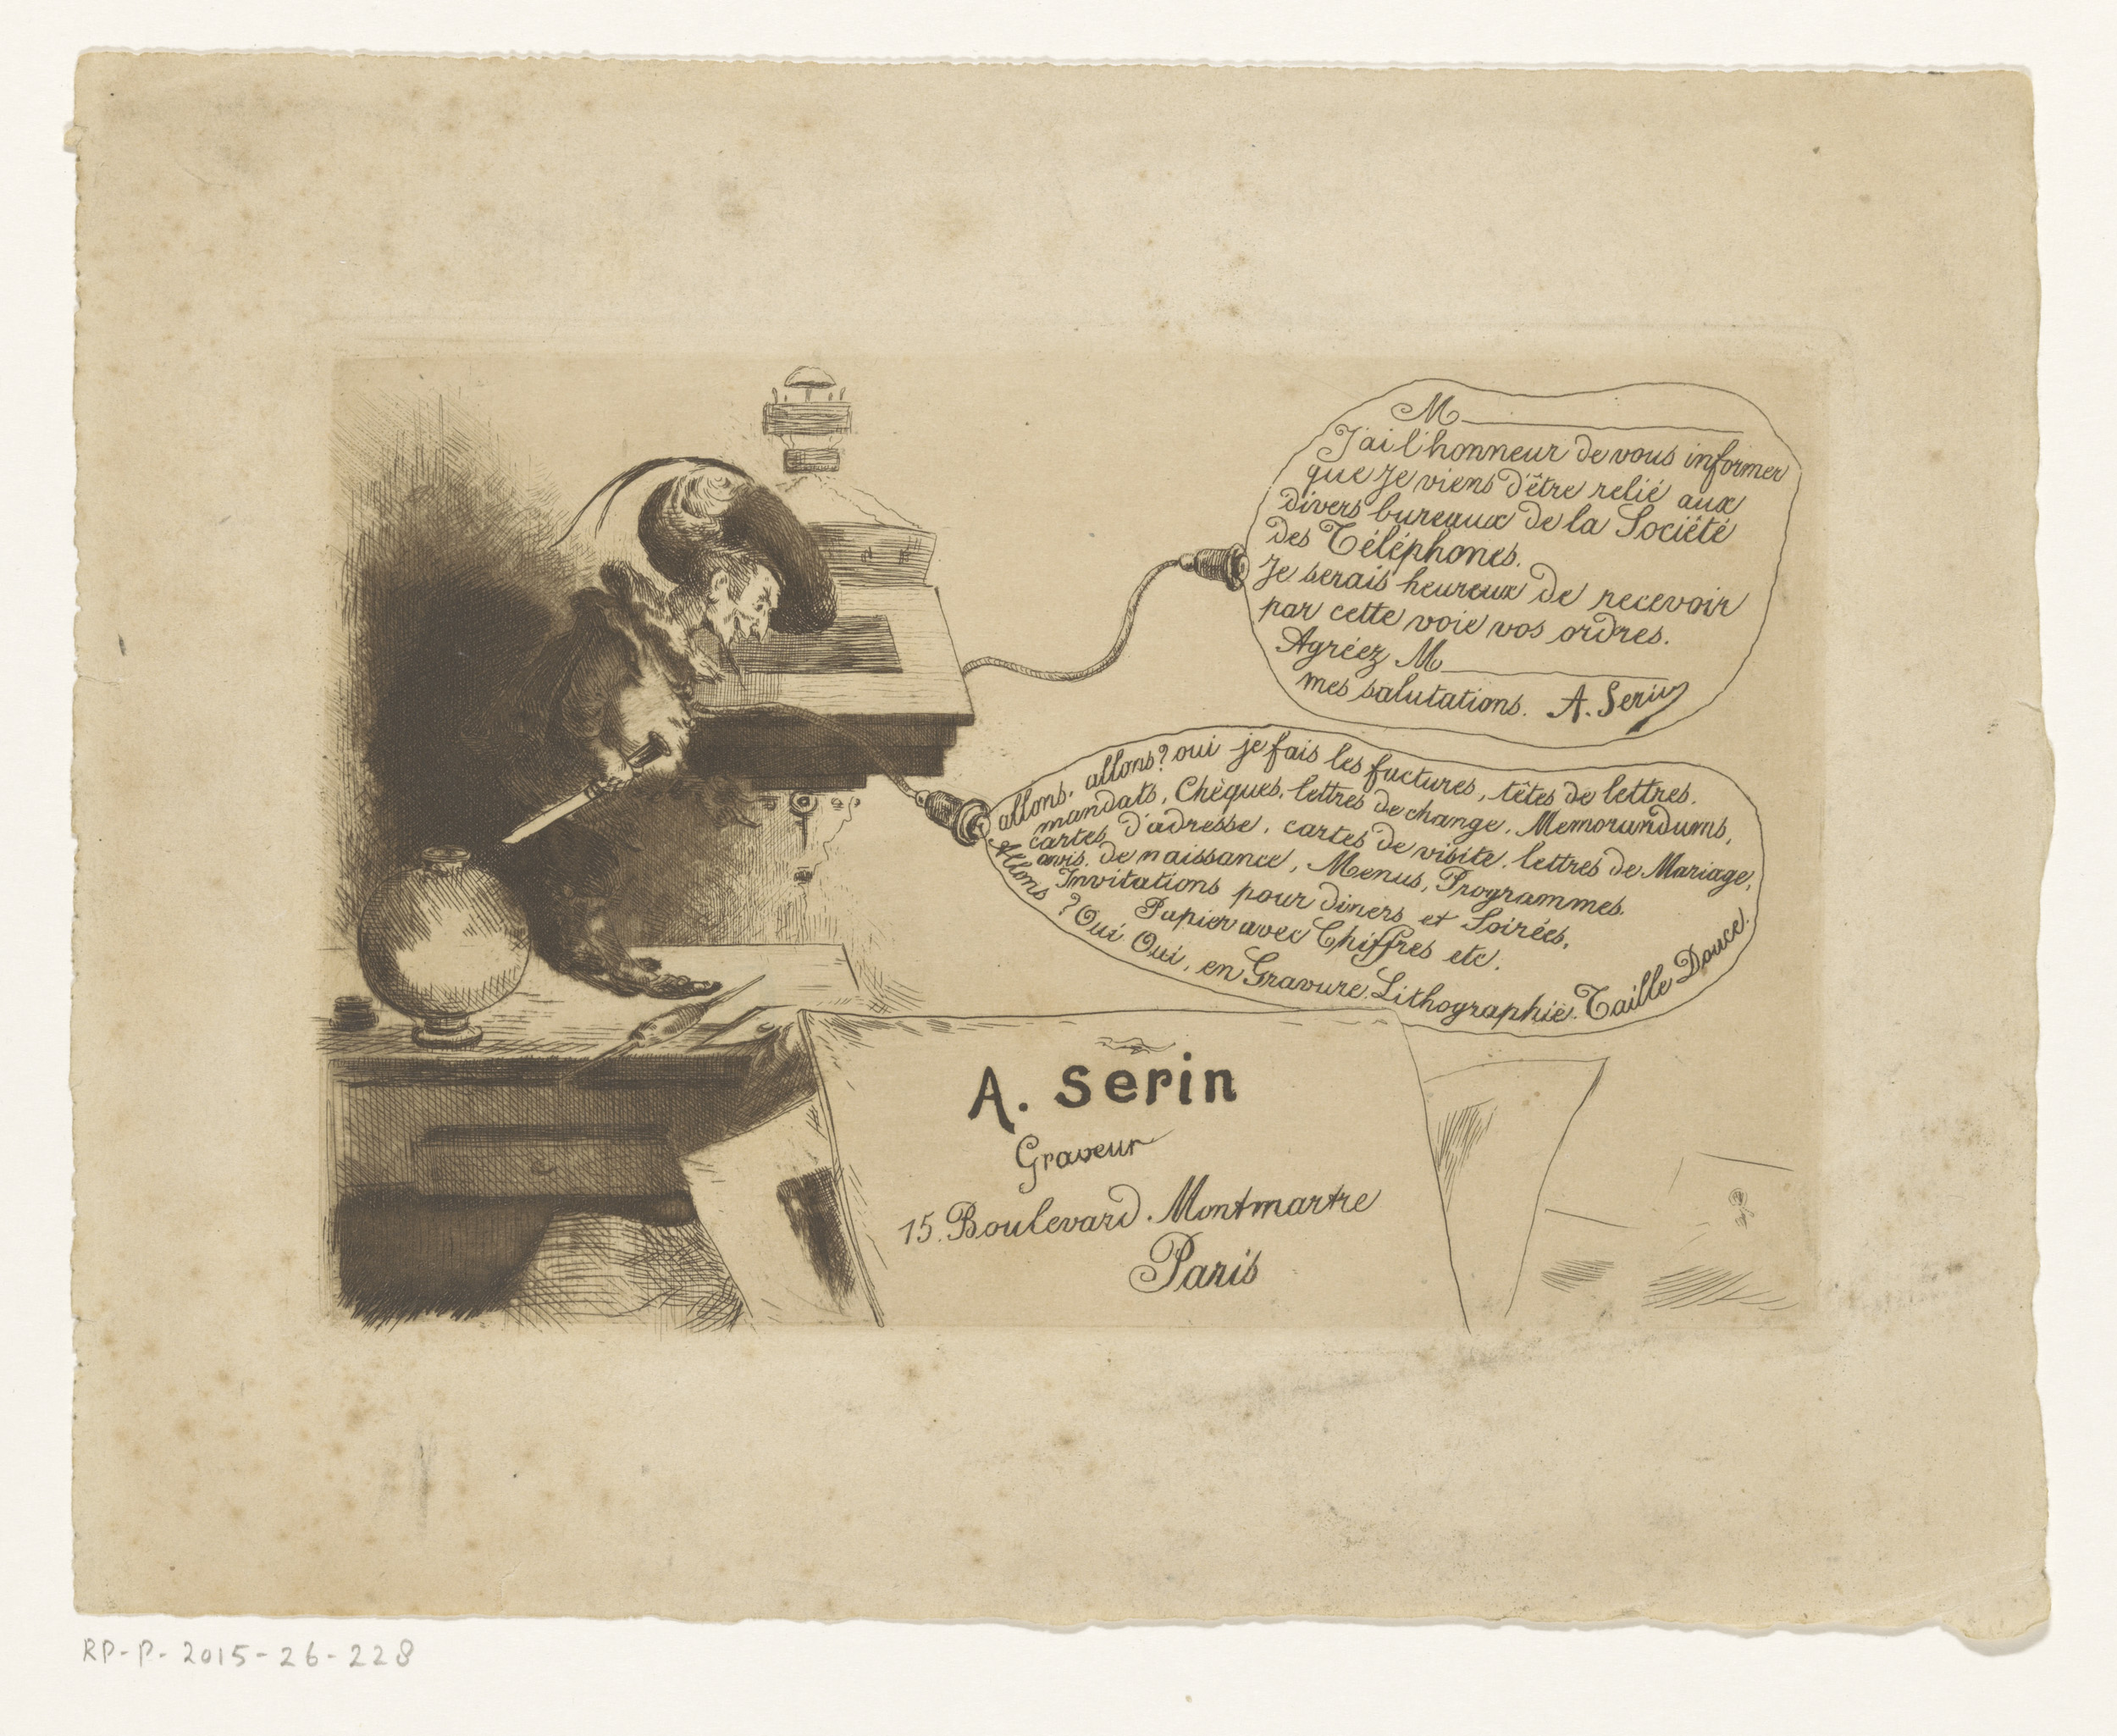 M
J'ai l'honneur de vous informer
que je viens d'être relié aux
divers bureaux de la Société
des Téléphones.
Je serais heureux de recevoir
par cette voie vos ordres.
Agréez M
mes salutations. A. Serin
allons, allons? oui je fais les factures, têtes de lettres.
mandats, Chèques, lettres de change, Memorandums,
cartes d'adresse, cartes de visite, lettres de Mariage,
avis de naissance, Menus, Programmes.
Invitations pour diners et Soirées,
Papier avec Chiffres etc.
Allons? Oui Oui, en Gravure. Lithographie. Taille Douce.
A. Serin
Graveur
15. Boulevard. Montmartre
Paris
RP-P-2015-26-228